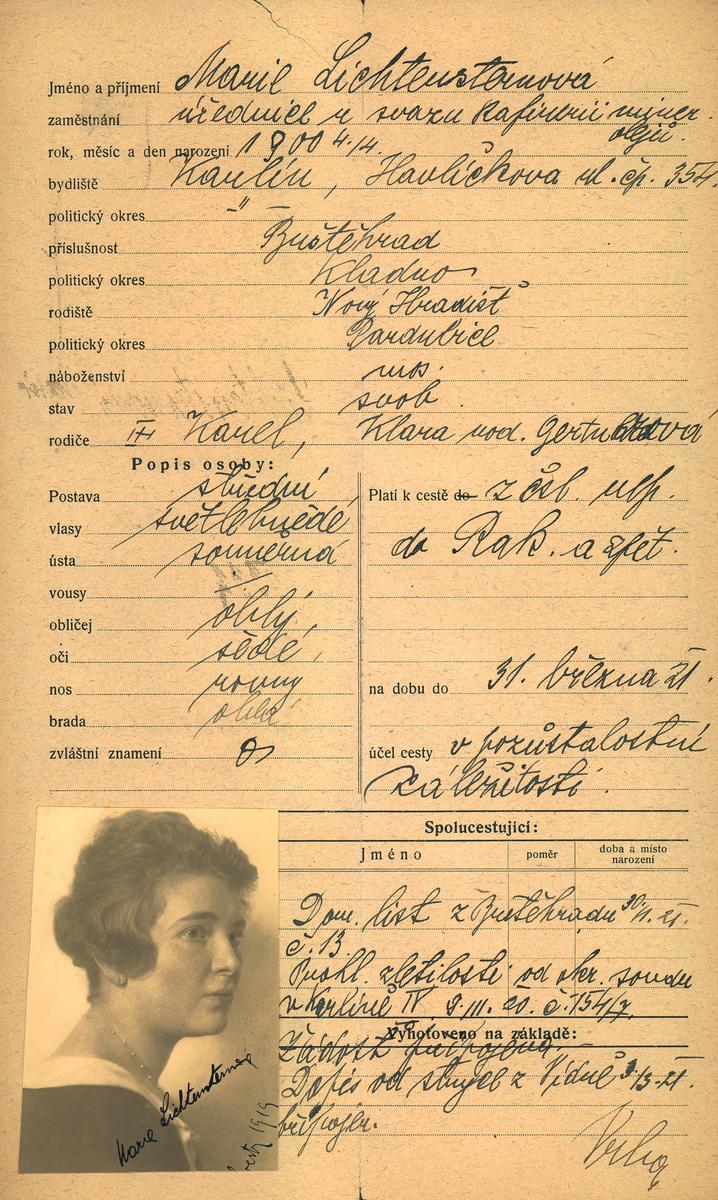 Jméno a příjmení Marie Lichtensternová
zaměstnání úřednice u svazu Rafinerií miner.
olejů.
rok, měsíc a den narození 1900 4./4.
bydliště Karlín, Havlíčkova ul. čp. 354.
politický okres -"-
příslušnost Buštěhrad
politický okres Kladno
rodiště Nový Hradišť
politický okres Pardubice
náboženství mos.
stav svob.
rodiče Karel, Klara roz.
Popis osoby:
Postava střední
vlasy světlehnědé
ústa souměrná
vousy —
obličej oblý,
oči šedé,
nos rovný
brada oblá
zvláštní znamení
Platí k cestě do z čsl. rep.
do Rak. a zpět.
na dobu do 31. března 21.
účel cesty v pozůstalostní
záležitosti.
Spolucestující:
Jméno
poměr
doba a místo
narození
Dom. list z Buštěhradu 21.
č. 13
Prohl. zletilosti od okr. soudu
v Karlíně IV 9.III.20. č.
Vyhotoveno na základě:
Žádost připojena.
Dopis od strýce z Vídně 21.
připojen.
Marie Lichtensternová
1919